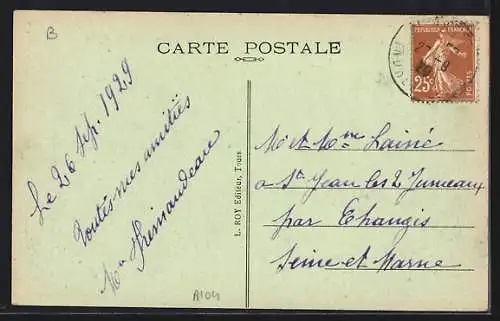 B
CARTE POSTALE
REPUBLIQUE FRANCAISE
25c
POSTES
Le 26 Sep. 1929
Toutes mes amitiés
L. ROY Editeur, Tours
Mr et Mme Lainé
a St Jean les 2 Jumeaux
par Changis
Seine et Marne
A104